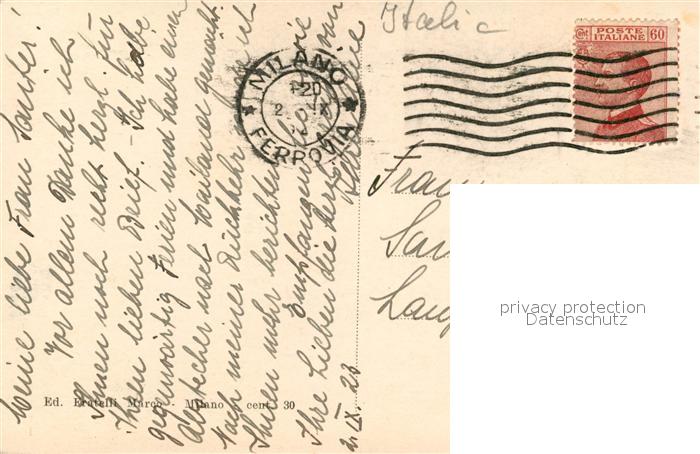 Meine liebe Frau Sauter!
Vor allem danke ich
Ihnen noch recht herzl. für
Ihren lieben Brief. - Ich habe
gegenwärtig Ferien und habe einen
Abstecher nach Mailand gemacht.
Nach meiner Rückkehr ich
Ihnen mehr berichten.
Empfangen Sie
Ihre Lieben die herzl. von
2. IX. 28
Italia
POSTE ITALIANE
Cent. 60
MILANO
FERROVIA
Frau
Ed. Fratelli Marco - Milano cent. 30
privacy protection
Datenschutz